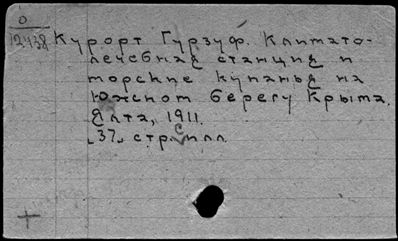 0
12438
Курорт Гурзуф. Климато-
лечебная станция и
морские купанья на
Южном берегу Крыма.
Ялта, 1911.
37 стр. с илл.